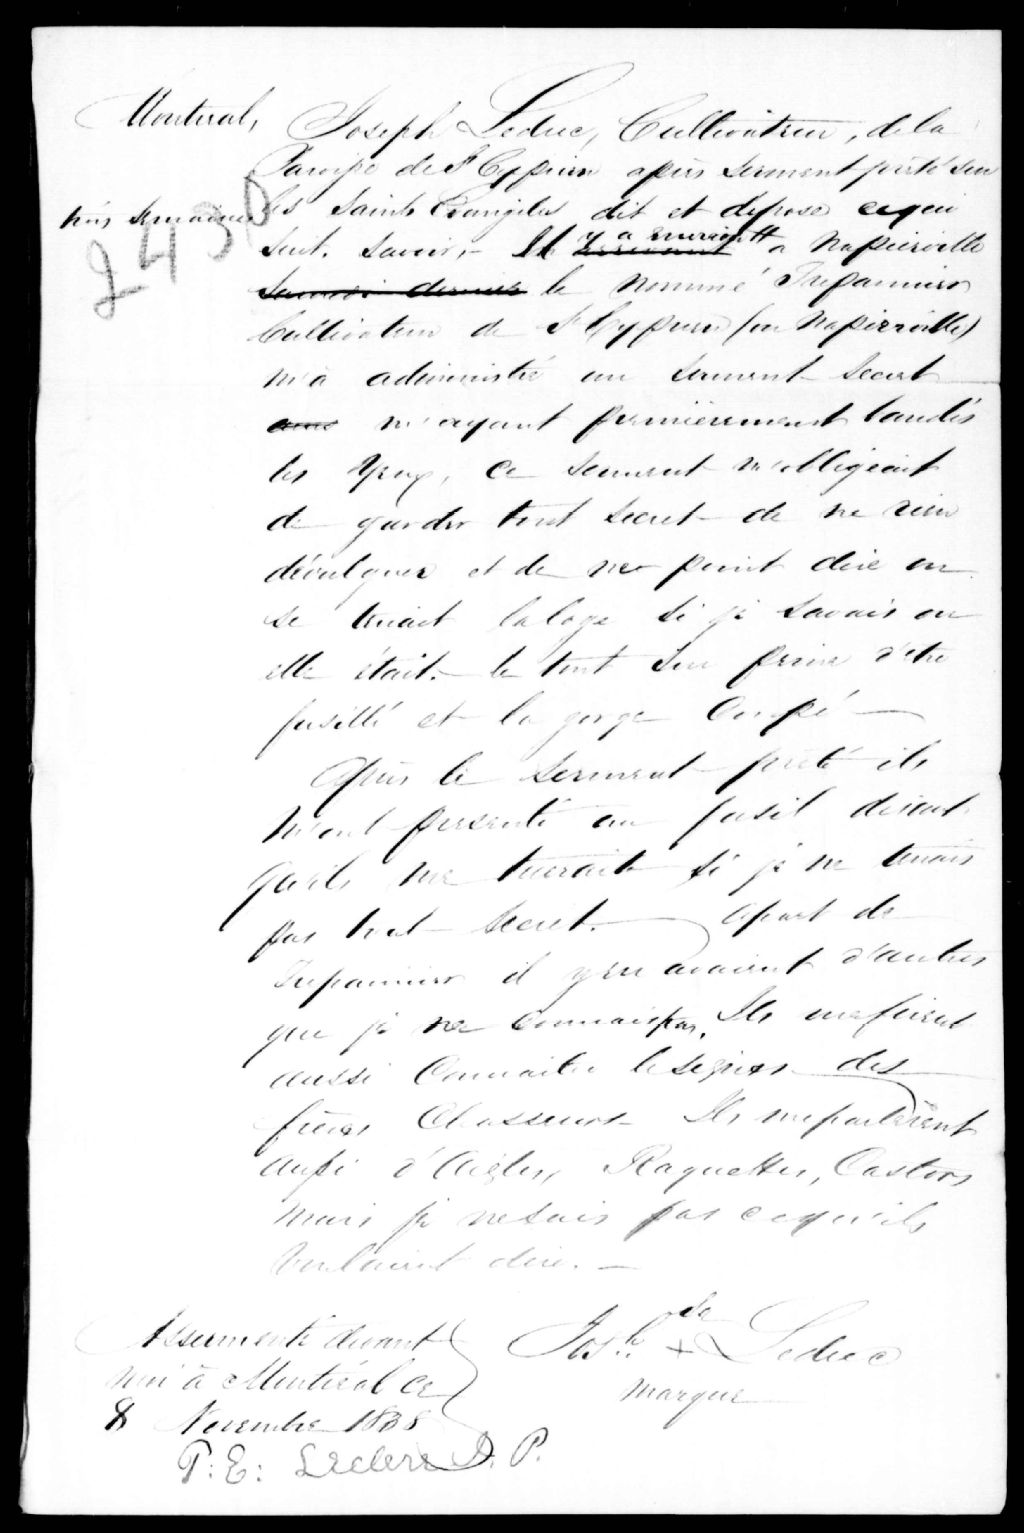 Montreal, Joseph Leduc, Cultivateur, de la
Paroisse de St Cyprien après serment prêté sur
les Saints Evangiles dit et depose ce qui
trois semaines
2430
suit. Savoir,- Il y a environ à Napierville
samedi dernier le nommé Trepannier
Cultivateur de St Cyprien (ou Napierville)
m'a administré un serment secret
m'ayant premièrement bandés
les yeux, ce serment m'obligeait
de garder tout secret - de ne rien
dévulguer et de ne point dire ou
se tenait la loge si je savais ou
elle était. - le tout sur peine d'etre
fusillé et la gorge Coupé -
Après le serment prêté ils
m'ont présenté un fusil disant
qu'ils me tuerait si je ne tenais
pas tout secret. - Apart de
Trepannier il y en avaient d'autres
que je ne connais pas. Ils me firent
aussi Connaitre le signes des
frères Chasseurs - Ils me parlèrent
aussi d'Aigles, Raquettes, Castors
mais je ne sais pas ce qu'ils
voulaient dire. -
Assermenté devant
moi à Montréal ce
8 Novembre 1838
P: E: Leclere J. P.
Josh. sa + Leduc
marque